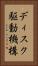 ディスク
駆動機構